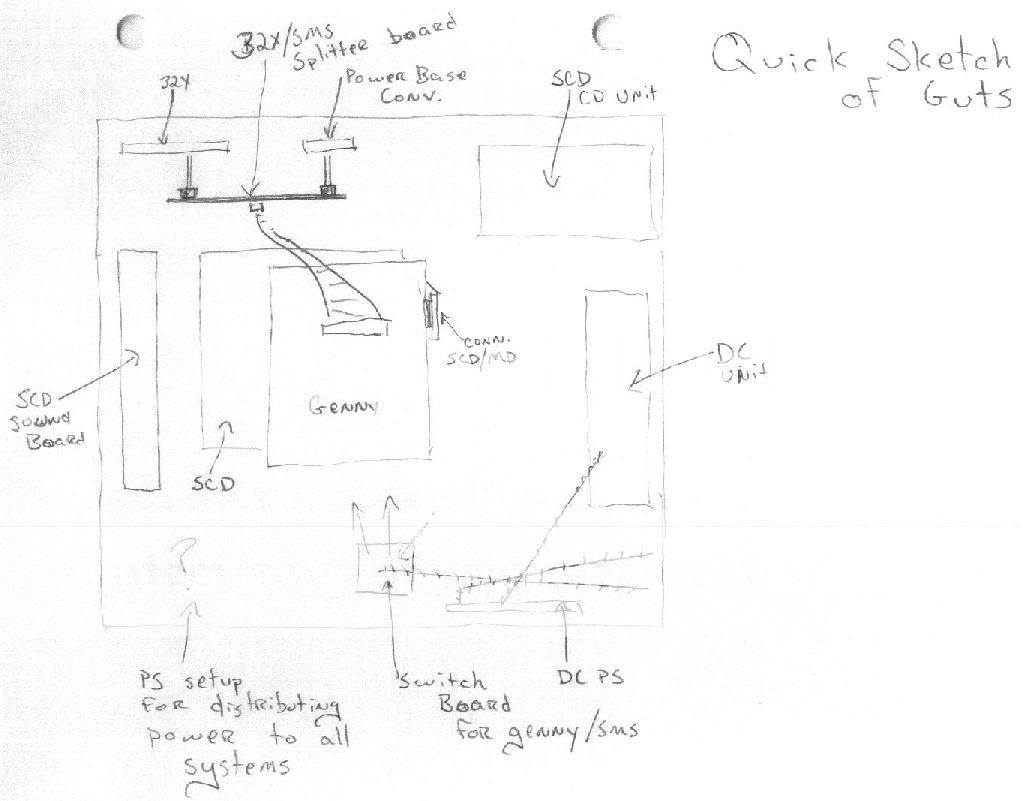 Quick Sketch
of Guts
32X/SMS
Splitter board
32X
Power Base
Conv.
SCD
CD Unit
SCD
Sound
Board
Genny
Conn.
SCD/MD
DC
Unit
SCD
?
PS setup
for distributing
power to all
systems
Switch
Board
for genny/sms
DC PS